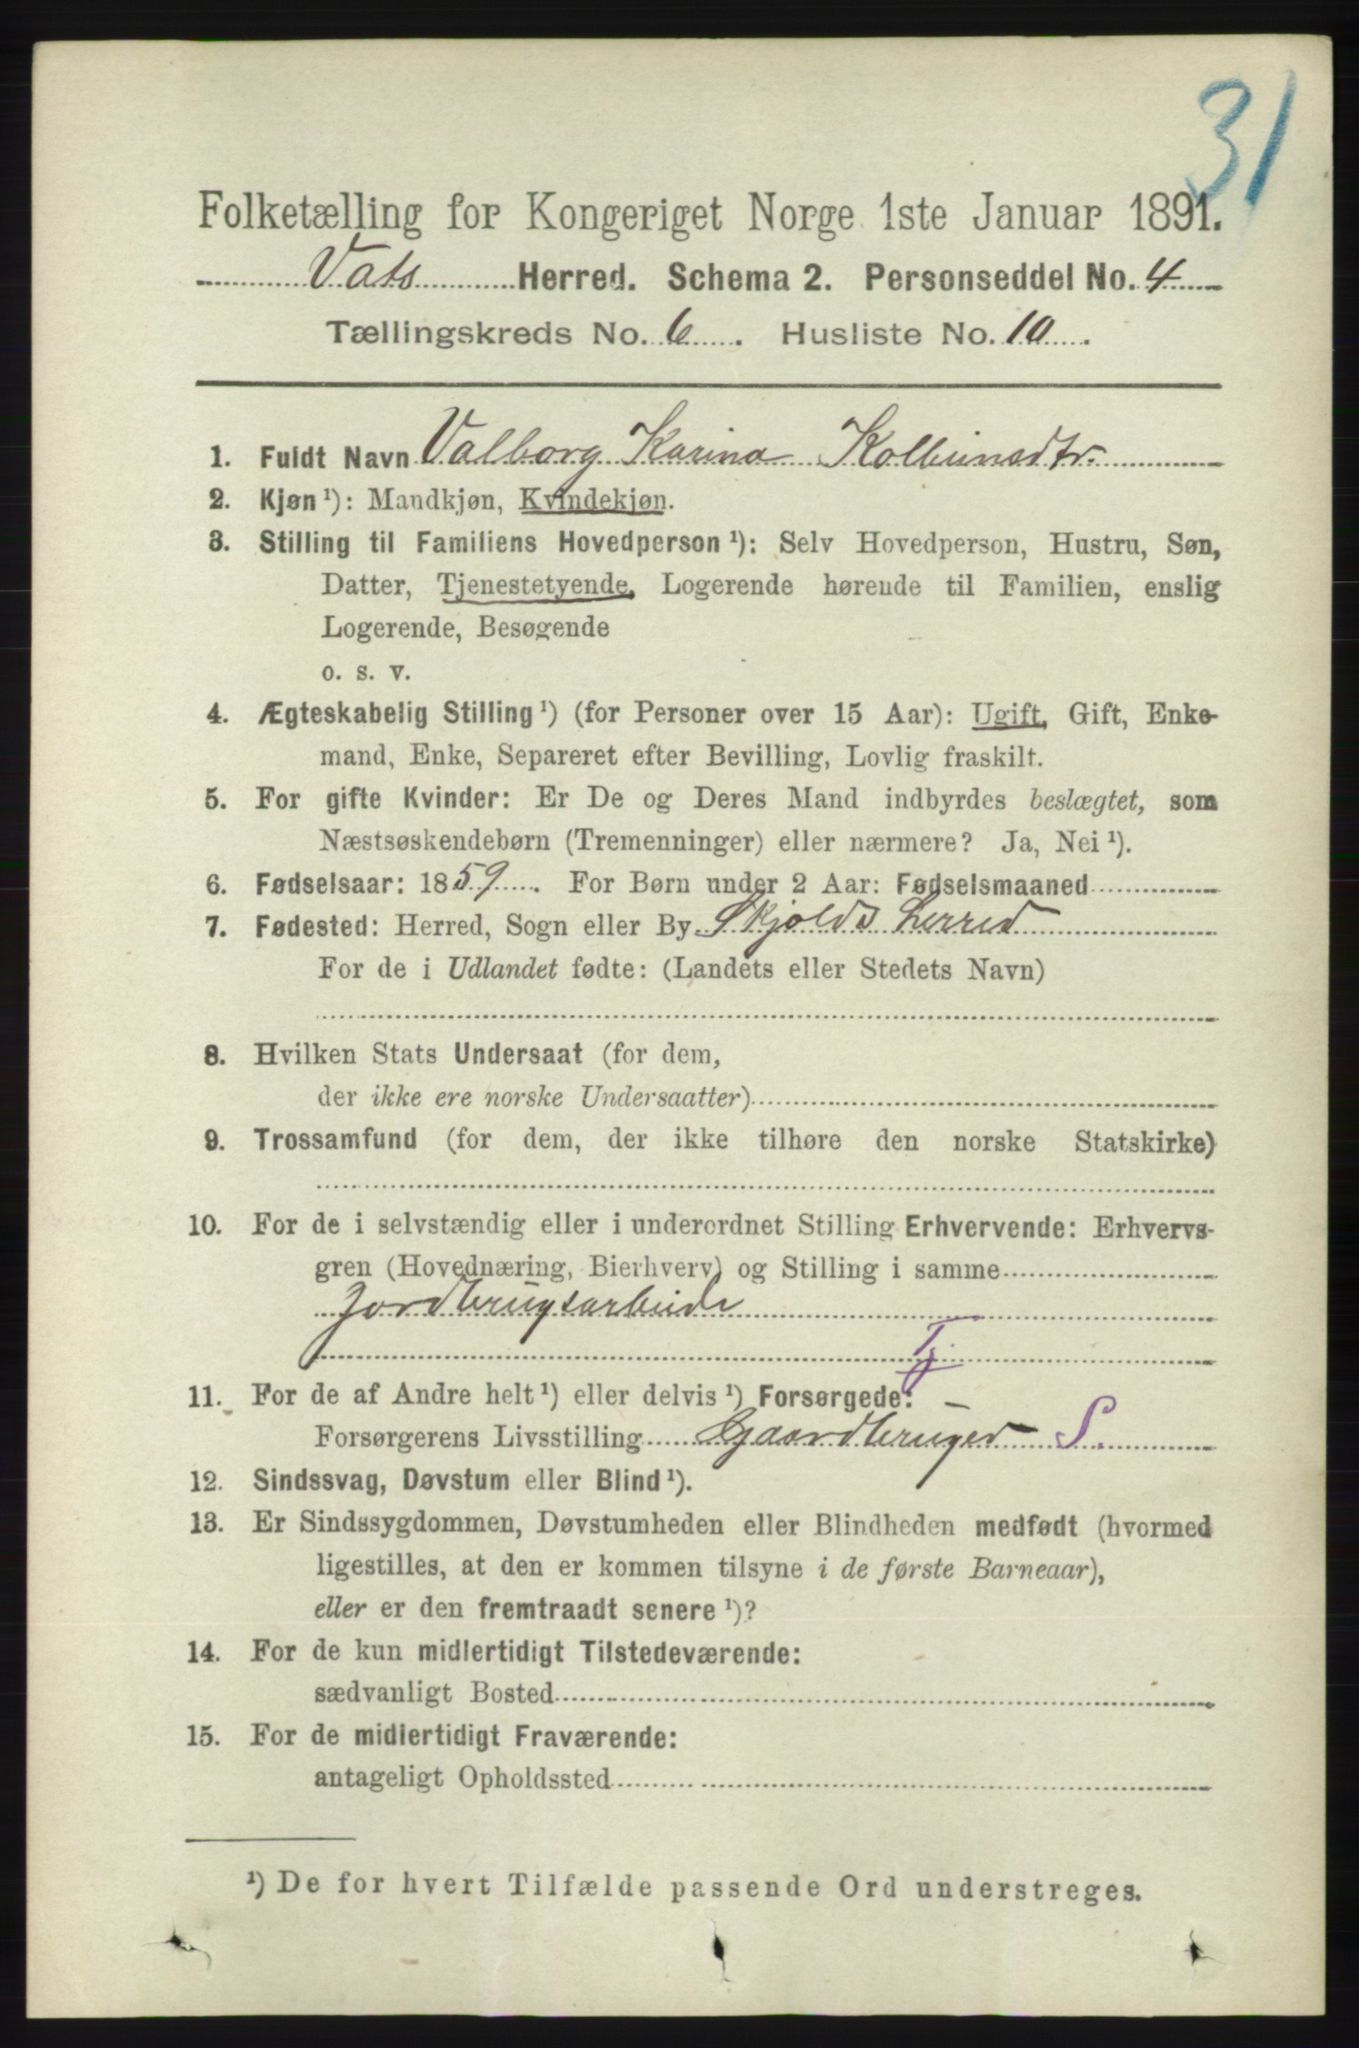 31
Folketælling for Kongeriget Norge 1ste Januar 1891.
Vats Herred. Schema 2. Personseddel No. 4
Tællingskreds No. 6. Husliste No. 10.
1. Fuldt Navn Valborg Karina Kolbeinsdtr.
2. Kjøn ¹): Mandkjøn, Kvindekjøn.
3. Stilling til Familiens Hovedperson ¹): Selv Hovedperson, Hustru, Søn,
Datter, Tjenestetyende, Logerende hørende til Familien, enslig
Logerende, Besøgende
o. s. v.
4. Ægteskabelig Stilling ¹) (for Personer over 15 Aar): Ugift, Gift, Enke-
mand, Enke, Separeret efter Bevilling, Lovlig fraskilt.
5. For gifte Kvinder: Er De og Deres Mand indbyrdes beslægtet, som
Næstsøskendebørn (Tremenninger) eller nærmere? Ja, Nei ¹).
6. Fødselsaar: 1859. For Børn under 2 Aar: Fødselsmaaned
7. Fødested: Herred, Sogn eller By Skjolds Herred
For de i Udlandet fødte: (Landets eller Stedets Navn)
8. Hvilken Stats Undersaat (for dem,
der ikke ere norske Undersaatter)
9. Trossamfund (for dem, der ikke tilhøre den norske Statskirke)
10. For de i selvstændig eller i underordnet Stilling Erhvervende: Erhvervs-
gren (Hovednæring, Bierhverv) og Stilling i samme
Jordbrugsarbeide
Tj.
11. For de af Andre helt ¹) eller delvis ¹) Forsørgede:
Forsørgerens Livsstilling Gaardbruger S.
12. Sindssvag, Døvstum eller Blind ¹).
13. Er Sindssygdommen, Døvstumheden eller Blindheden medfødt (hvormed
ligestilles, at den er kommen tilsyne i de første Barneaar),
eller er den fremtraadt senere ¹)?
14. For de kun midlertidigt Tilstedeværende:
sædvanligt Bosted
15. For de midlertidigt Fraværende:
antageligt Opholdssted
¹) De for hvert Tilfælde passende Ord understreges.